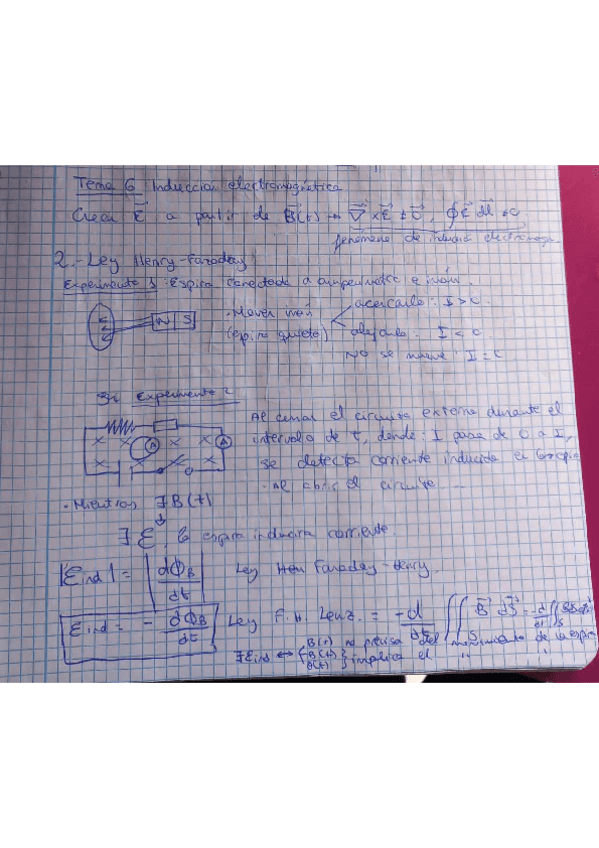 Tema 6 Inducción electromagnética
Crear E⃗ a partir de B⃗(t) → ∇⃗ × E⃗ ≠ 0⃗, ∮E⃗ dl⃗ ≠ 0.
fenómeno de inducción electromag
2.- Ley Henry-Faraday
Experimento 1: Espira conectada a amperímetro e imán.
N S
- Mover imán
(espira quieta)
acercarlo: I > 0
alejarlo: I < 0
No se mueve: I = 0
Experimento 2
A A
Al cerrar el circuito externo durante el
intervalo de t, donde I pasa de 0 a I,
se detecta corriente inducida en la espira
- Al abrir el circuito ...
- Mientras ∃ B(t)
∃ ε, la espira inducirá corriente.
|εind| = |dΦB/dt| Ley Faraday-Henry.
εind = - dΦB/dt Ley F.H. Lenz. = -d/dt ∬S B⃗ dS⃗ = -d/dt ∬S
∃ εind ↔ no precisa del movimiento de la espira
implica el " "